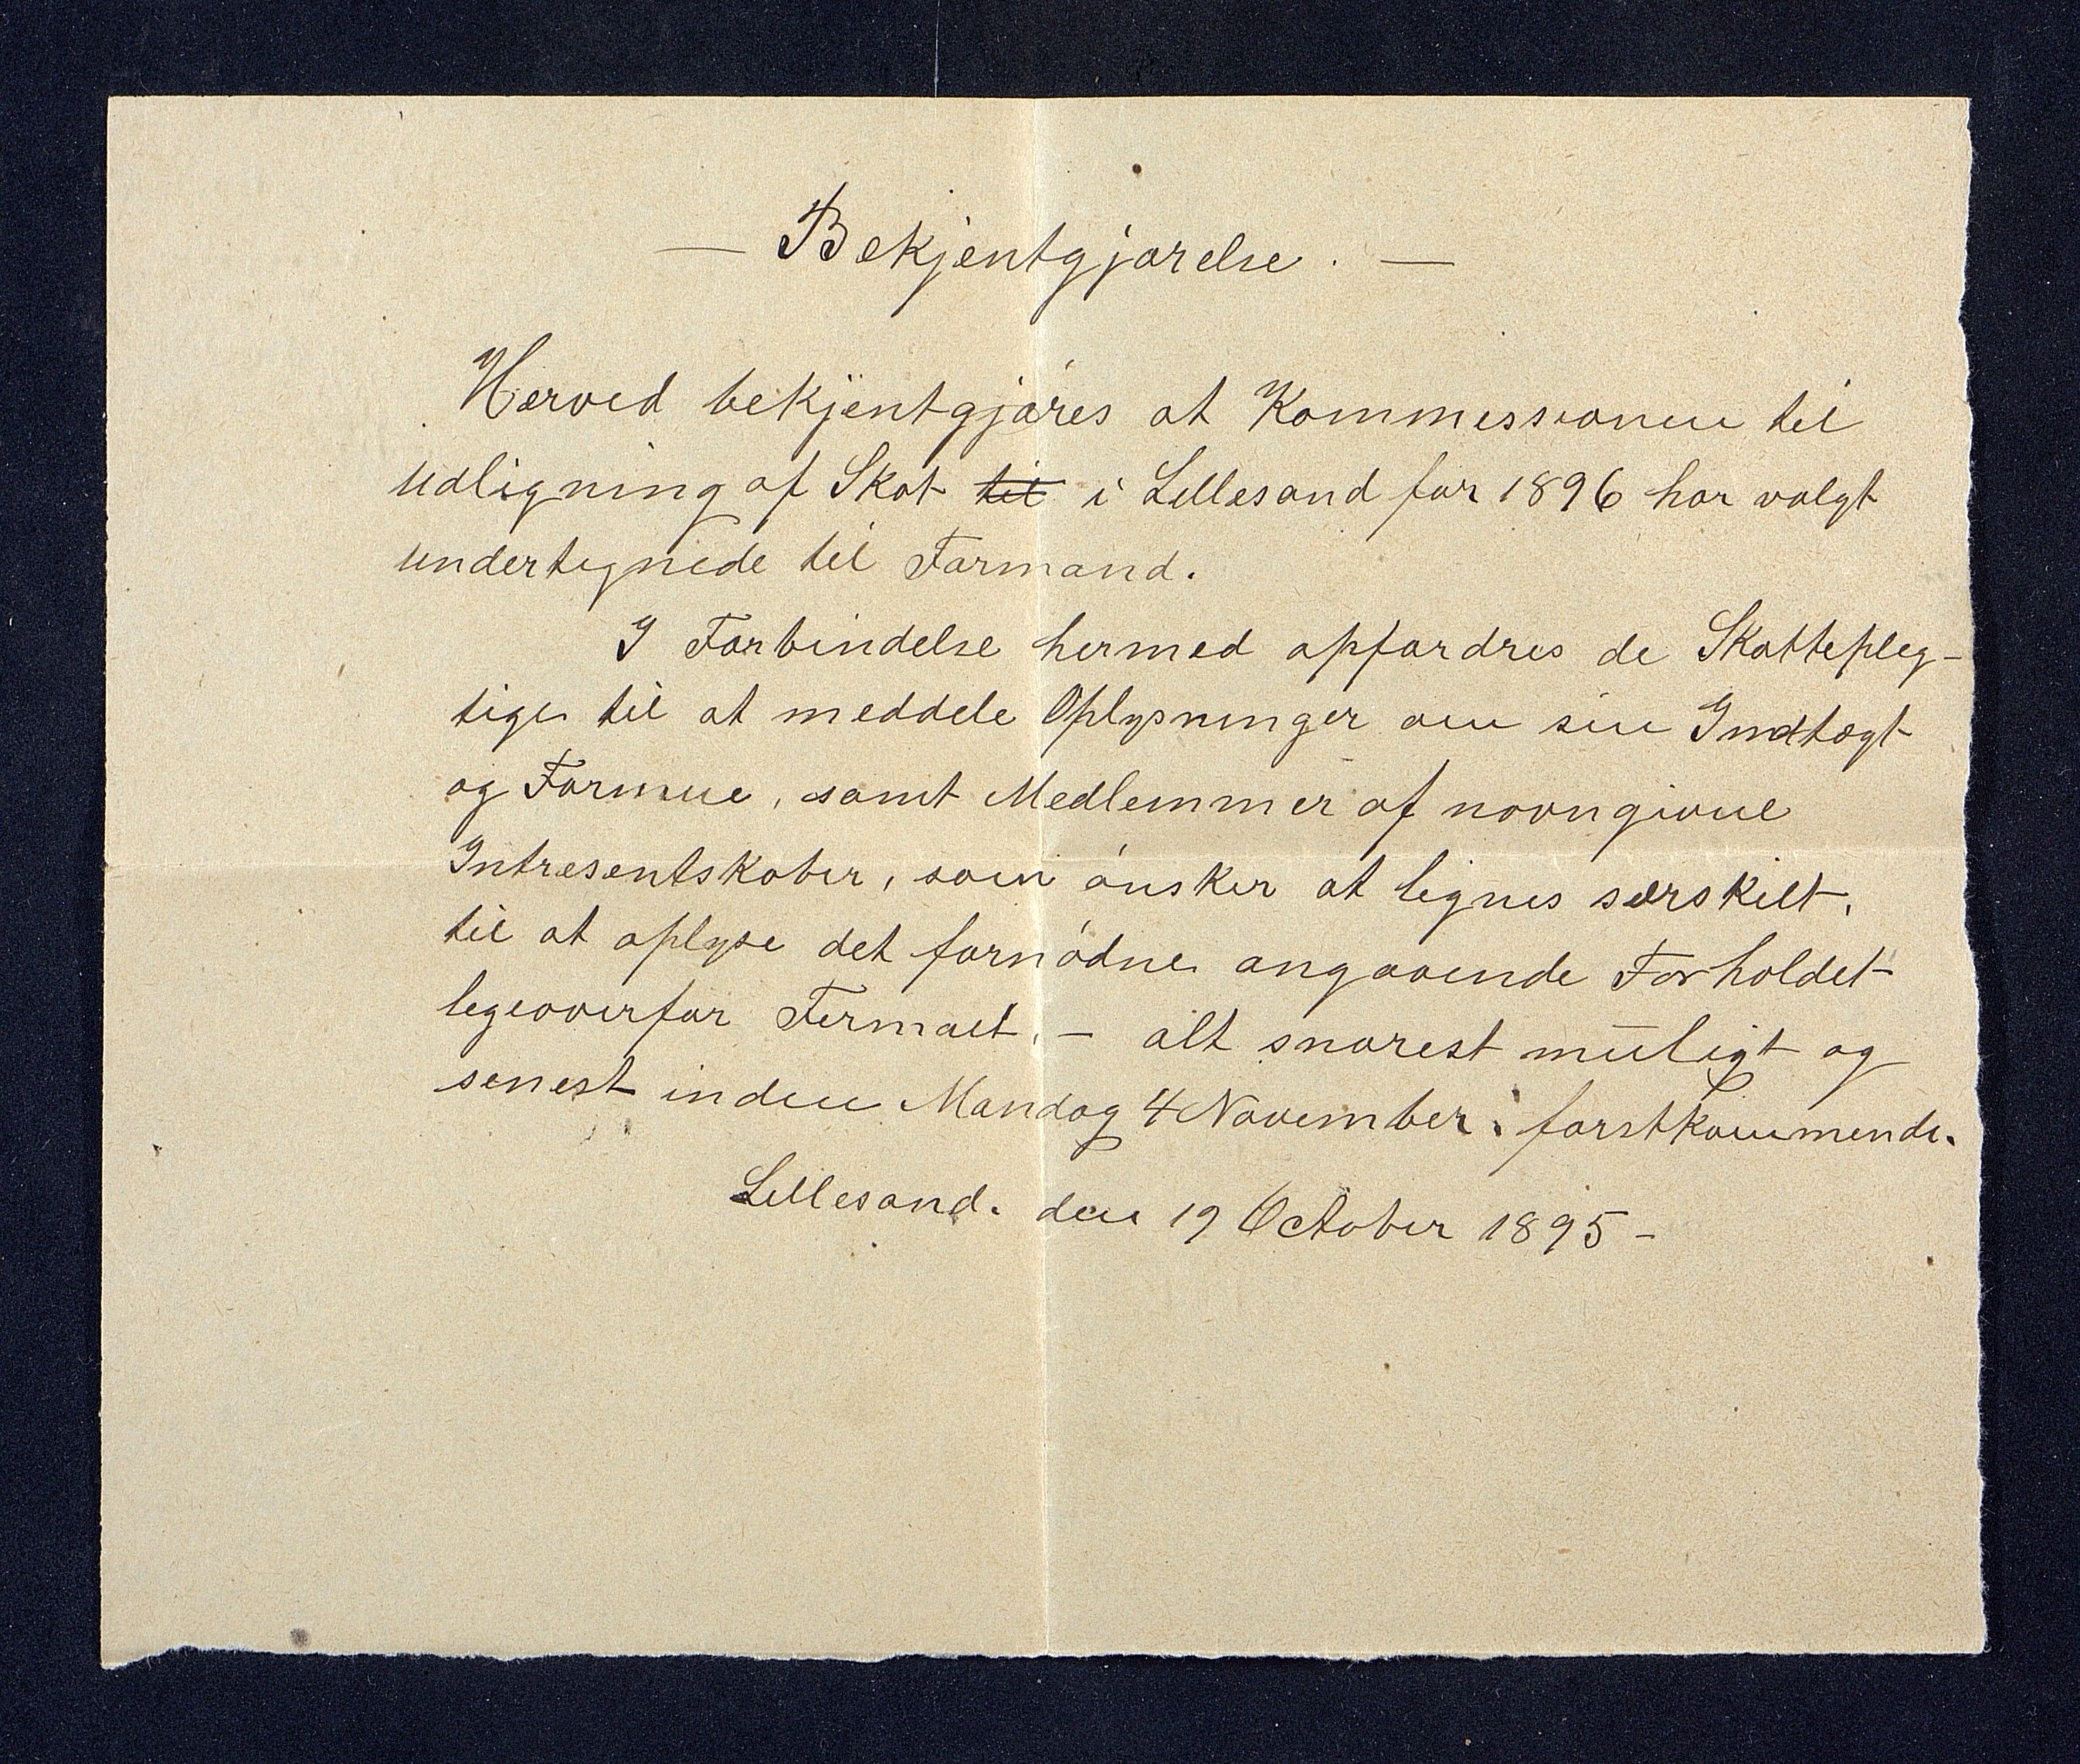 — Bekjentgjørelse. —
Herved bekjentgjøres at Kommissionen til
Udligning af Skat ~~til~~ i Lillesand for 1896 har valgt
undertegnede til Formand.
I Forbindelse hermed opfordres de Skattepleg-
tige til at meddele Oplysninger om sin Indtægt
og Formue, samt Medlemmer af navngivne
Intresentskaber, som ønsker at lignes særskilt,
til at oplyse det fornødne angaaende Forholdet
ligeoverfor Firmaet, – alt snarest muligt og
senest inden Mandag 4 November førstkommende.
Lillesand. den 19 October 1895 –